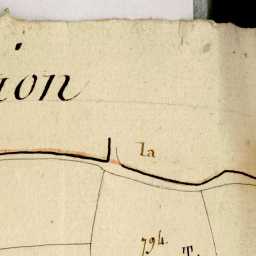 ion
la
794.
T.